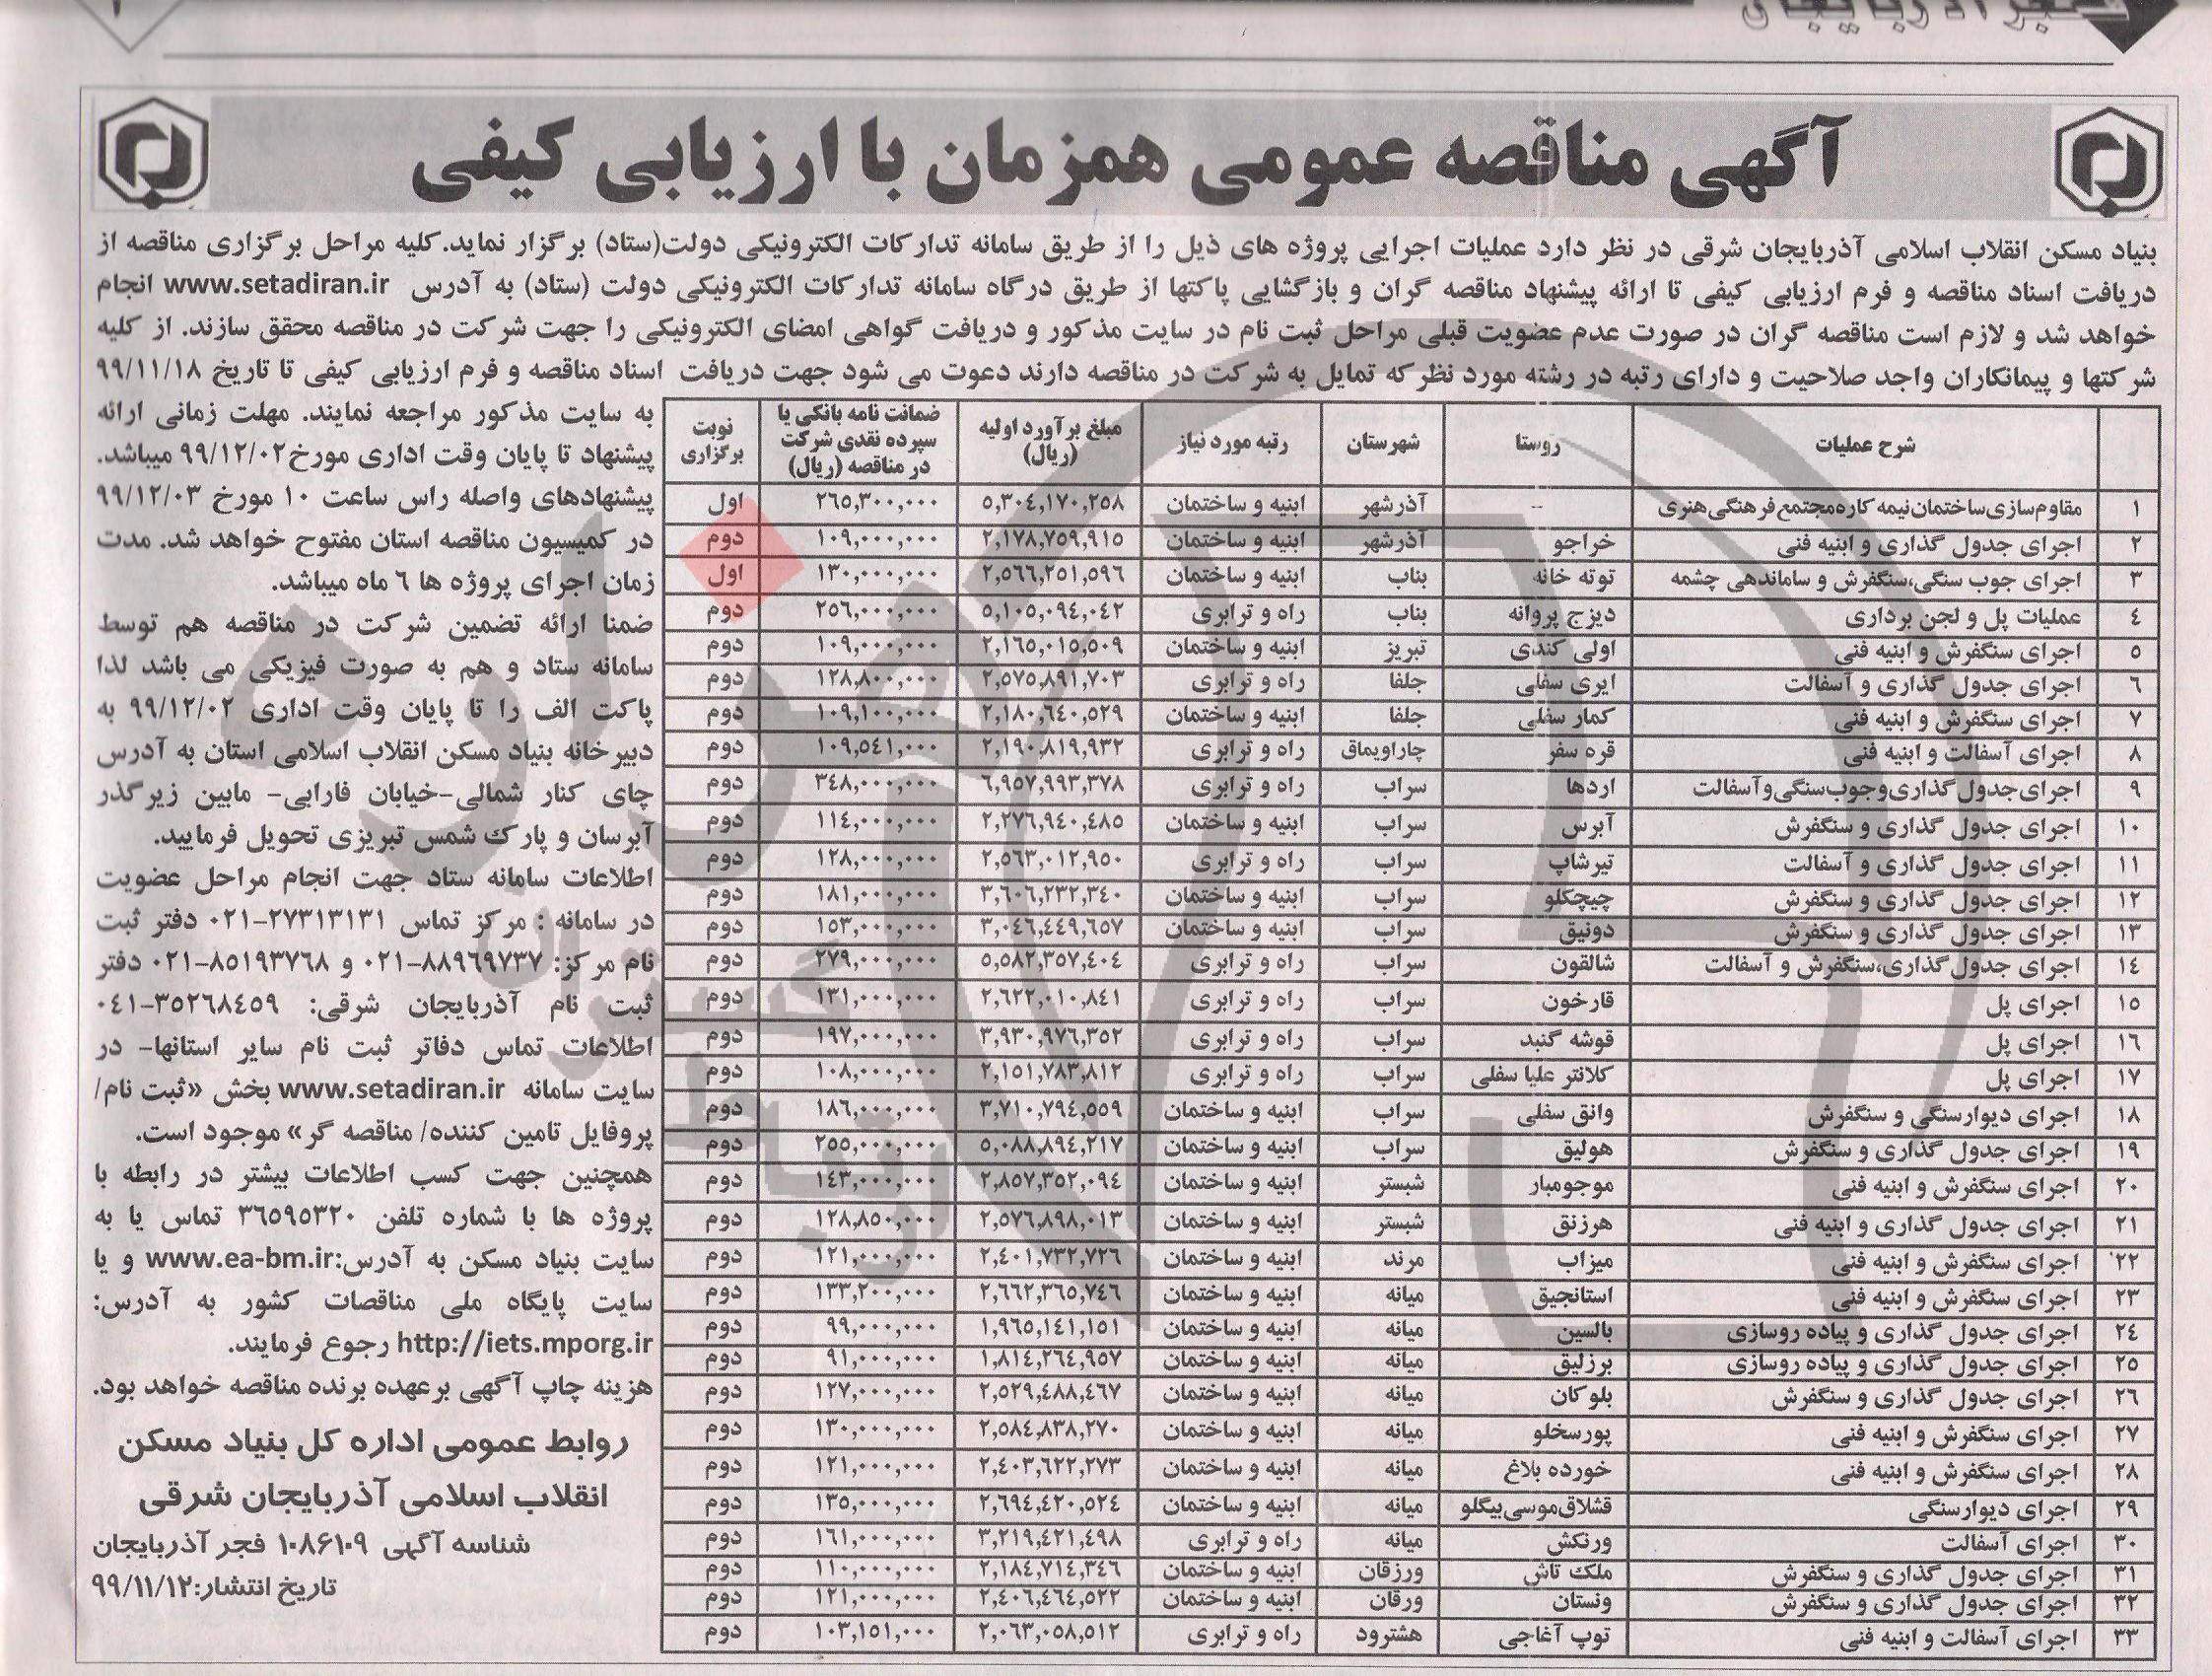 آگهی مناقصه عمومی همزمان با ارزیابی کیفی
بنیاد مسکن انقلاب اسلامی آذربایجان شرقی در نظر دارد عملیات اجرایی پروژه های ذیل را از طریق سامانه تدارکات الکترونیکی دولت(ستاد) برگزار نماید.کلیه مراحل برگزاری مناقصه از
دریافت اسناد مناقصه و فرم ارزیابی کیفی تا ارائه پیشنهاد مناقصه گران و بازگشایی پاکتها از طریق درگاه سامانه تدارکات الکترونیکی دولت (ستاد) به آدرس www.setadiran.ir انجام
خواهد شد و لازم است مناقصه گران در صورت عدم عضویت قبلی مراحل ثبت نام در سایت مذکور و دریافت گواهی امضای الکترونیکی را جهت شرکت در مناقصه محقق سازند. از کلیه
شرکتها و پیمانکاران واجد صلاحیت و دارای رتبه در رشته مورد نظرکه تمایل به شرکت در مناقصه دارند دعوت می شود جهت دریافت اسناد مناقصه و فرم ارزیابی کیفی تا تاریخ ۹۹/۱۱/۱۸
شرح عملیات روستا شهرستان رتبه مورد نیاز مبلغ برآورد اولیه (ریال) ضمانت نامه بانکی یا سپرده نقدی شرکت در مناقصه (ریال) نوبت برگزاری
۱ مقاوم سازی ساختمان نیمه کاره مجتمع فرهنگی هنری -- آذرشهر ابنیه و ساختمان ۵,۳۰۴,۱۷۰,۲۵۸ ۲۶۵,۳۰۰,۰۰۰ اول
۲ اجرای جدول گذاری و ابنیه فنی خراجو آذرشهر ابنیه و ساختمان ۲,۱۷۸,۷۵۹,۹۱۵ ۱۰۹,۰۰۰,۰۰۰ دوم
۳ اجرای جوب سنگی،سنگفرش و ساماندهی چشمه توته خانه بناب ابنیه و ساختمان ۲,۵۶۶,۲۵۱,۵۹۶ ۱۳۰,۰۰۰,۰۰۰ اول
۴ عملیات پل و لجن برداری دیزج پروانه بناب راه و ترابری ۵,۱۰۵,۰۹۴,۰۴۲ ۲۵۶,۰۰۰,۰۰۰ دوم
۵ اجرای سنگفرش و ابنیه فنی اولی کندی تبریز ابنیه و ساختمان ۲,۱۶۵,۰۱۵,۵۰۹ ۱۰۹,۰۰۰,۰۰۰ دوم
۶ اجرای جدول گذاری و آسفالت ایری سفلی جلفا راه و ترابری ۲,۵۷۵,۸۹۱,۷۰۳ ۱۲۸,۸۰۰,۰۰۰ دوم
۷ اجرای سنگفرش و ابنیه فنی کمار سفلی جلفا ابنیه و ساختمان ۲,۱۸۰,۶۴۰,۵۲۹ ۱۰۹,۱۰۰,۰۰۰ دوم
۸ اجرای آسفالت و ابنیه فنی قره سفر چاراویماق راه و ترابری ۲,۱۹۰,۸۱۹,۹۳۲ ۱۰۹,۵۴۱,۰۰۰ دوم
۹ اجرای جدول گذاری و جوب سنگی و آسفالت اردها سراب راه و ترابری ۶,۹۵۷,۹۹۳,۳۷۸ ۳۴۸,۰۰۰,۰۰۰ دوم
۱۰ اجرای جدول گذاری و سنگفرش آبرس سراب ابنیه و ساختمان ۲,۲۷۶,۹۴۰,۴۸۵ ۱۱۴,۰۰۰,۰۰۰ دوم
۱۱ اجرای جدول گذاری و آسفالت تیرشاپ سراب راه و ترابری ۲,۵۶۳,۰۱۲,۹۵۰ ۱۲۸,۰۰۰,۰۰۰ دوم
۱۲ اجرای جدول گذاری و سنگفرش چیچکلو سراب ابنیه و ساختمان ۳,۶۰۶,۲۳۲,۳۴۰ ۱۸۱,۰۰۰,۰۰۰ دوم
۱۳ اجرای جدول گذاری و سنگفرش دونیق سراب ابنیه و ساختمان ۳,۰۴۶,۴۴۹,۶۵۷ ۱۵۳,۰۰۰,۰۰۰ دوم
۱۴ اجرای جدول گذاری،سنگفرش و آسفالت شالقون سراب راه و ترابری ۵,۵۸۲,۳۵۷,۴۰۴ ۲۷۹,۰۰۰,۰۰۰ دوم
۱۵ اجرای پل قارخون سراب راه و ترابری ۲,۶۲۲,۰۱۰,۸۴۱ ۱۳۱,۰۰۰,۰۰۰ دوم
۱۶ اجرای پل قوشه گنبد سراب راه و ترابری ۳,۹۳۰,۹۷۶,۳۵۲ ۱۹۷,۰۰۰,۰۰۰ دوم
۱۷ اجرای پل کلانتر علیا سفلی سراب راه و ترابری ۲,۱۵۱,۷۸۳,۸۱۲ ۱۰۸,۰۰۰,۰۰۰ دوم
۱۸ اجرای دیوارسنگی و سنگفرش وانق سفلی سراب ابنیه و ساختمان ۳,۷۱۰,۷۹۴,۵۵۹ ۱۸۶,۰۰۰,۰۰۰ دوم
۱۹ اجرای جدول گذاری و سنگفرش هولیق سراب ابنیه و ساختمان ۵,۰۸۸,۸۹۴,۲۱۷ ۲۵۵,۰۰۰,۰۰۰ دوم
۲۰ اجرای سنگفرش و ابنیه فنی موجومبار شبستر ابنیه و ساختمان ۲,۸۵۷,۳۵۲,۰۹۴ ۱۴۳,۰۰۰,۰۰۰ دوم
۲۱ اجرای جدول گذاری و ابنیه فنی هرزنق شبستر ابنیه و ساختمان ۲,۵۷۶,۸۹۸,۰۱۳ ۱۲۸,۸۵۰,۰۰۰ دوم
۲۲ اجرای سنگفرش و ابنیه فنی میزاب مرند ابنیه و ساختمان ۲,۴۰۱,۷۳۲,۷۲۶ ۱۲۱,۰۰۰,۰۰۰ دوم
۲۳ اجرای سنگفرش و ابنیه فنی استانجیق میانه ابنیه و ساختمان ۲,۶۶۲,۳۶۵,۷۴۶ ۱۳۳,۲۰۰,۰۰۰ دوم
۲۴ اجرای جدول گذاری و پیاده روسازی بالسین میانه ابنیه و ساختمان ۱,۹۶۵,۱۴۱,۱۵۱ ۹۹,۰۰۰,۰۰۰ دوم
۲۵ اجرای جدول گذاری و پیاده روسازی برزلیق میانه ابنیه و ساختمان ۱,۸۱۴,۲۶۴,۹۵۷ ۹۱,۰۰۰,۰۰۰ دوم
۲۶ اجرای جدول گذاری و سنگفرش بلوکان میانه ابنیه و ساختمان ۲,۵۲۹,۴۸۸,۴۶۷ ۱۲۷,۰۰۰,۰۰۰ دوم
۲۷ اجرای سنگفرش و ابنیه فنی پورسخلو میانه ابنیه و ساختمان ۲,۵۸۴,۸۳۸,۲۷۰ ۱۳۰,۰۰۰,۰۰۰ دوم
۲۸ اجرای سنگفرش و ابنیه فنی خورده بلاغ میانه ابنیه و ساختمان ۲,۴۰۳,۶۲۲,۲۷۳ ۱۲۱,۰۰۰,۰۰۰ دوم
۲۹ اجرای دیوارسنگی قشلاق موسی بیگلو میانه ابنیه و ساختمان ۲,۶۹۴,۴۲۰,۵۲۴ ۱۳۵,۰۰۰,۰۰۰ دوم
۳۰ اجرای آسفالت ورنکش میانه راه و ترابری ۳,۲۱۹,۴۲۱,۴۹۸ ۱۶۱,۰۰۰,۰۰۰ دوم
۳۱ اجرای جدول گذاری و سنگفرش ملک تاش ورزقان ابنیه و ساختمان ۲,۱۸۴,۷۱۴,۳۴۶ ۱۱۰,۰۰۰,۰۰۰ دوم
۳۲ اجرای جدول گذاری و سنگفرش ونستان ورقان ابنیه و ساختمان ۲,۴۰۶,۴۶۴,۵۲۲ ۱۲۱,۰۰۰,۰۰۰ دوم
۳۳ اجرای آسفالت و ابنیه فنی توپ آغاجی هشترود راه و ترابری ۲,۰۶۳,۰۵۸,۵۱۲ ۱۰۳,۱۵۱,۰۰۰ دوم
به سایت مذکور مراجعه نمایند. مهلت زمانی ارائه
پیشنهاد تا پایان وقت اداری مورخ۹۹/۱۲/۰۲ میباشد.
پیشنهادهای واصله راس ساعت ۱۰ مورخ ۹۹/۱۲/۰۳
در کمیسیون مناقصه استان مفتوح خواهد شد. مدت
زمان اجرای پروژه ها ۶ ماه میباشد.
ضمنا ارائه تضمین شرکت در مناقصه هم توسط
سامانه ستاد و هم به صورت فیزیکی می باشد لذا
پاکت الف را تا پایان وقت اداری ۹۹/۱۲/۰۲ به
دبیرخانه بنیاد مسکن انقلاب اسلامی استان به آدرس
چای کنار شمالی-خیابان فارابی- مابین زیرگذر
آبرسان و پارک شمس تبریزی تحویل فرمایید.
اطلاعات سامانه ستاد جهت انجام مراحل عضویت
در سامانه : مرکز تماس ۲۷۳۱۳۱۳۱-۰۲۱ دفتر ثبت
نام مرکز: ۸۸۹۶۹۷۳۷-۰۲۱ و ۸۵۱۹۳۷۶۸-۰۲۱ دفتر
ثبت نام آذربایجان شرقی: ۳۵۲۶۸۴۵۹-۰۴۱
اطلاعات تماس دفاتر ثبت نام سایر استانها- در
سایت سامانه www.setadiran.ir بخش «ثبت نام/
پروفایل تامین کننده/ مناقصه گر» موجود است.
همچنین جهت کسب اطلاعات بیشتر در رابطه با
پروژه ها با شماره تلفن ۳۶۵۹۵۳۲۰ تماس یا به
سایت بنیاد مسکن به آدرس:www.ea-bm.ir و یا
سایت پایگاه ملی مناقصات کشور به آدرس:
http://iets.mporg.ir رجوع فرمایند.
هزینه چاپ آگهی برعهده برنده مناقصه خواهد بود.
روابط عمومی اداره کل بنیاد مسکن
انقلاب اسلامی آذربایجان شرقی
شناسه آگهی ۱۰۸۶۱۰۹ فجر آذربایجان
تاریخ انتشار:۹۹/۱۱/۱۲